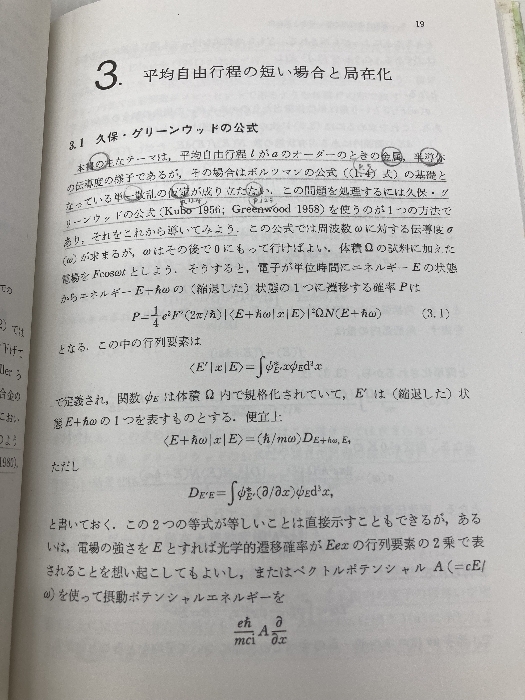 19
3. 平均自由行程の短い場合と局在化
3.1 久保・グリーンウッドの公式
本書の主なテーマは,平均自由行程 l が a のオーダーのときの金属,半導体
の伝導度の様子であるが,その場合はボルツマンの公式((1.4)式)の基礎と
なっている単一散乱の仮定が成り立たない.この問題を処理するには久保・グ
リーンウッドの公式(Kubo 1956; Greenwood 1958)を使うのが1つの方法で
あり,それをこれから導いてみよう.この公式では周波数 ω に対する伝導度 σ
(ω)が求まるが,ω はその後で0にもって行けばよい.体積 Ω の試料に加えた
電場を Fcosωt としよう.そうすると,電子が単位時間にエネルギー E の状態
からエネルギー E+ħω の(縮退した)状態の1つに遷移する確率 P は
P=1/4 e²F²(2π/ħ)|⟨E+ħω|x|E⟩|²ΩN(E+ħω) (3.1)
となる.この中の行列要素は
⟨E'|x|E⟩=∫ψ*E'xψEd³x
で定義され,関数 ψE は体積 Ω 内で規格化されていて,E' は(縮退した)状
態 E+ħω の1つを表すものとする.便宜上
⟨E+ħω|x|E⟩=(ħ/mω)DE+ħω,E,
ただし
DE'E=∫ψ*E'(∂/∂x)ψEd³x,
と書いておく.この2つの等式が等しいことは直接示すこともできるが,ある
いは,電場の強さを E とすれば光学的遷移確率が Eex の行列要素の2乗で表
されることを想い起こしてもよいし,またはベクトルポテンシャル A(=cE/
ω)を使って摂動ポテンシャルエネルギーを
eħ/mci A ∂/∂x